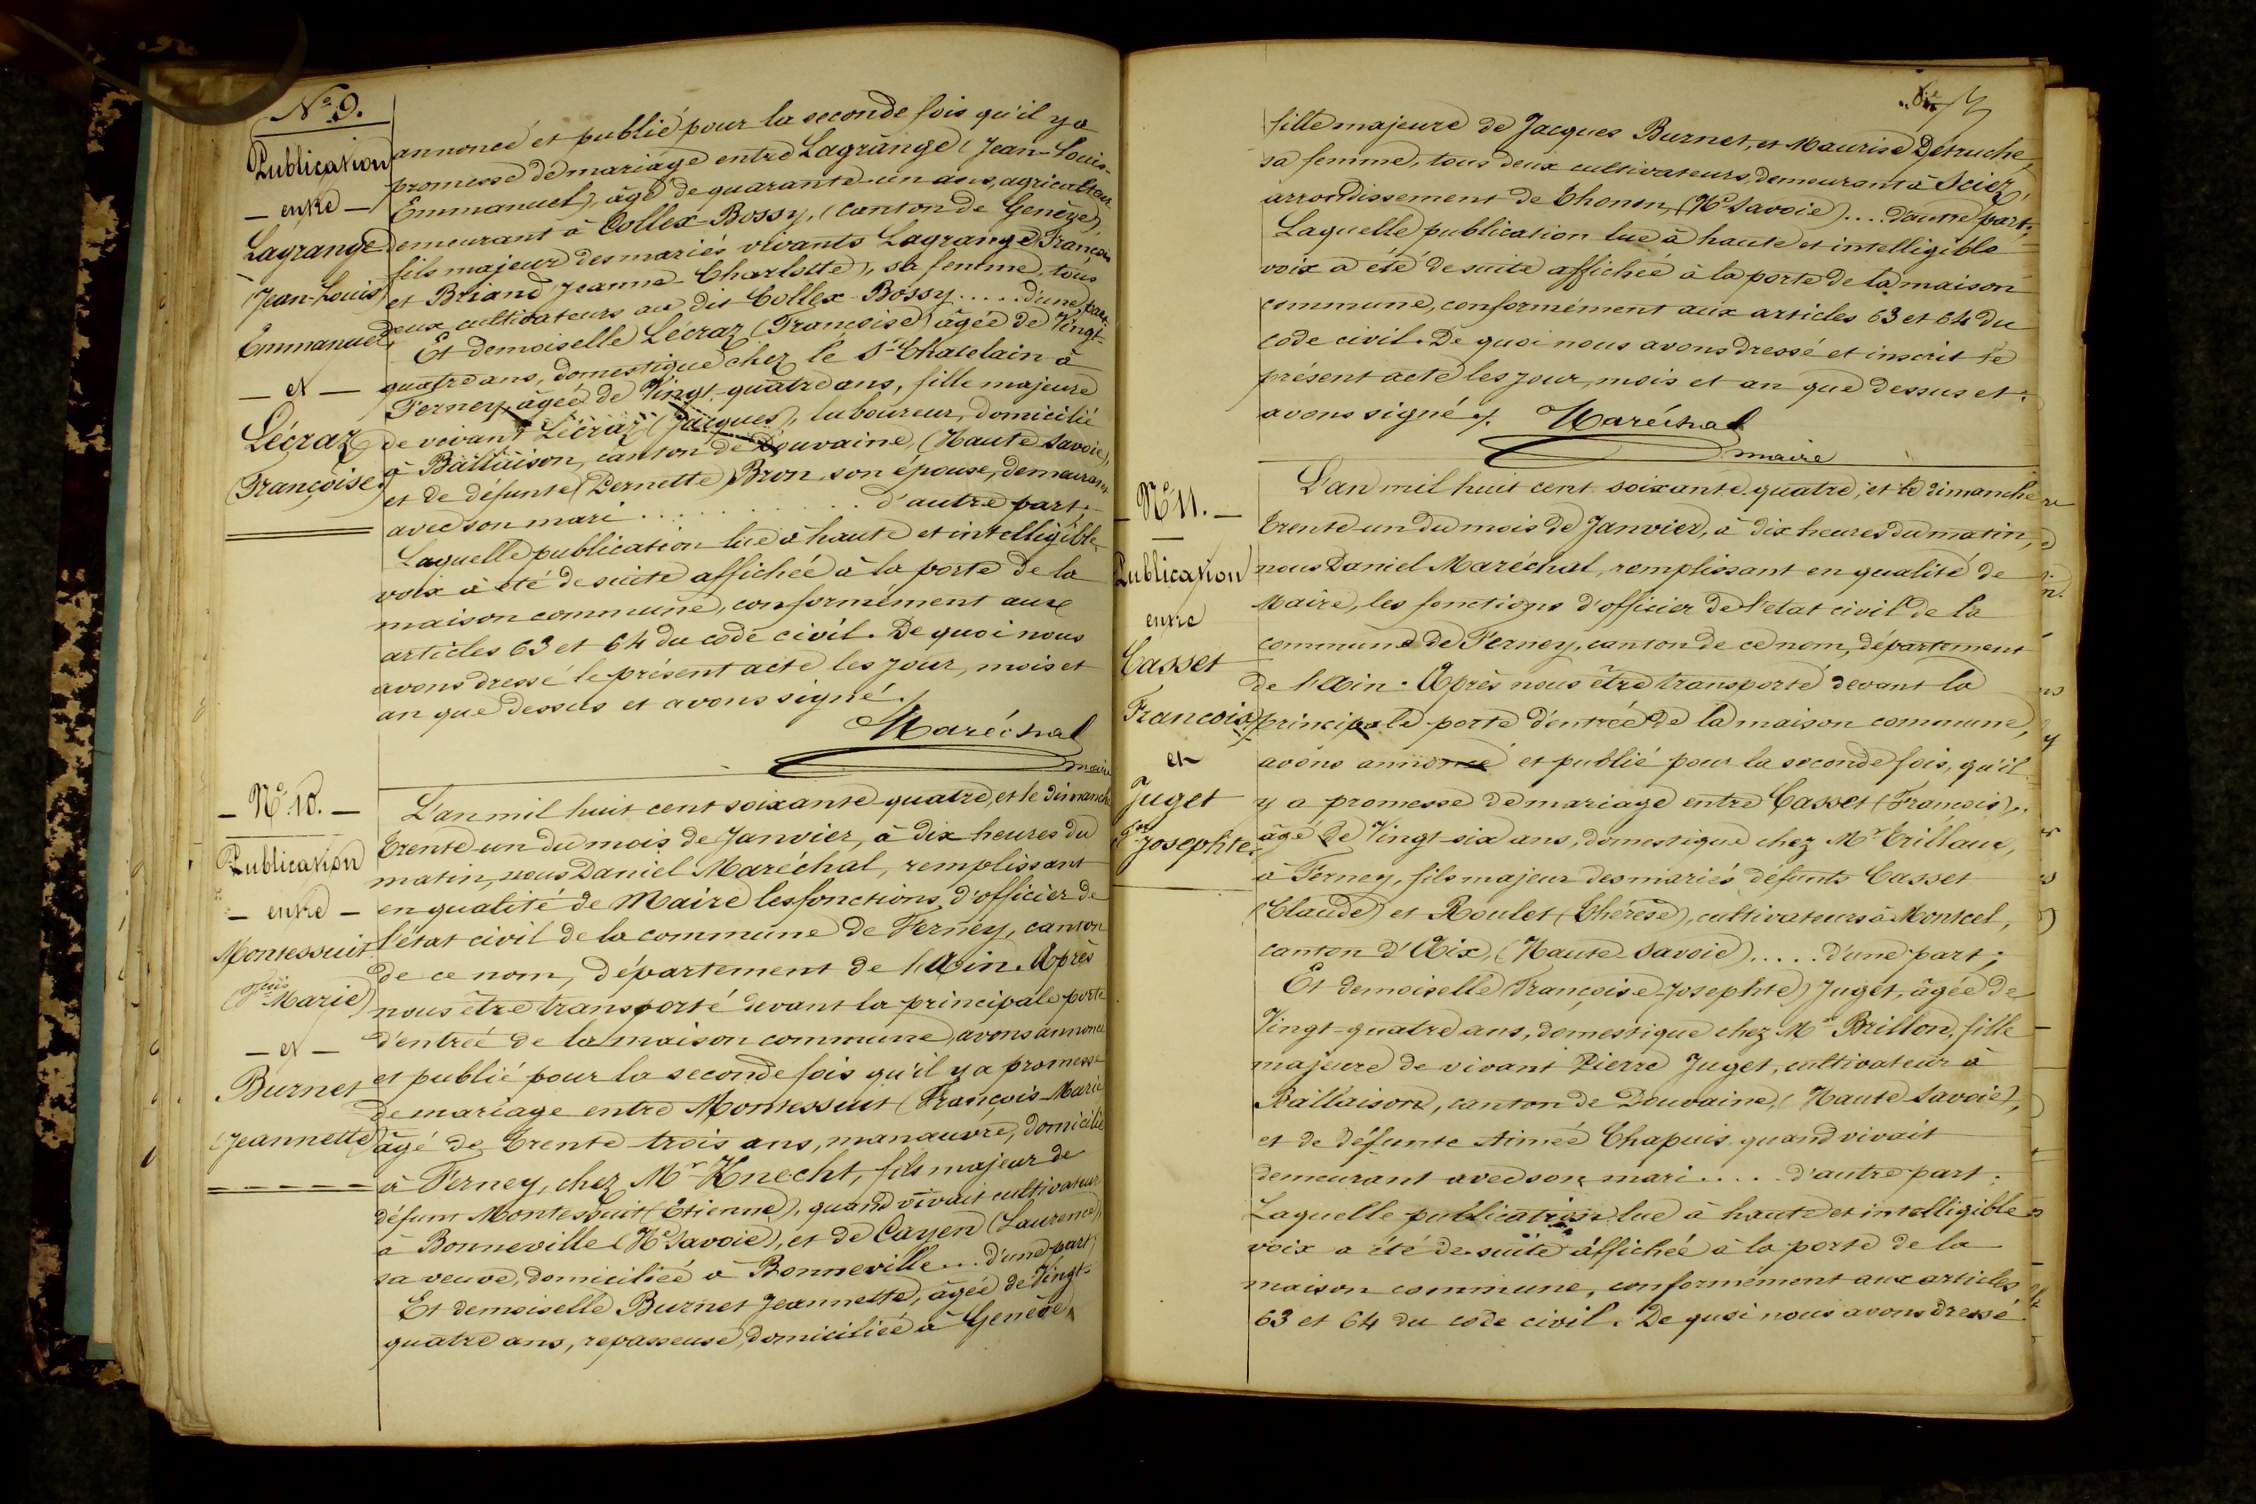 N° 9.
Publication
— entre —
Lagrange
(Jean-Louis
Emmanuel)
— et —
Lécraz
(Françoise)
annoncé et publié pour la seconde fois qu'il y a
promesse de mariage entre Lagrange (Jean-Louis-
Emmanuel), âgé de quarante-un ans, agriculteur
demeurant à Collex-Bossy, (canton de Genève)
fils majeur des mariés vivants Lagrange François
et Briand Jeanne Charlotte), sa femme, tous
deux cultivateurs au dit Collex-Bossy ..... d'une part
Et demoiselle Lécraz (Françoise) âgée de Vingt-
quatre ans, domestique chez le Sr Chatelain à
Ferney, âgée de Vingt-quatre ans, fille majeure
de vivant Lécraz (Jacques), laboureur, domicilié
à Ballaison, canton de Douvaine, (Haute Savoie),
et de défunte (Pernette) Bron, son épouse, demeurant
avec son mari . . . . . . . . . . d'autre part.
Laquelle publication lue à haute et intelligible
voix a été de suite affichée à la porte de la
maison commune, conformément aux
articles 63 et 64 du code civil. De quoi nous
avons dressé le présent acte les jour, mois et
an que dessus et avons signé./.
Maréchal
maire
— N° 10. —
Publication
— entre —
Montessuit
(fçois Marie)
— et —
Burnet
(Jeannette)
L'an mil huit cent soixante quatre, et le dimanche
trente-un du mois de Janvier, à dix heures du
matin, nous Daniel Maréchal, remplissant
en qualité de Maire les fonctions d'officier de
l'état civil de la commune de Ferney, canton
de ce nom, département de l'Ain. Après
nous être transporté devant la principale porte
d'entrée de la maison commune, avons annoncé
et publié pour la seconde fois qu'il y a promesse
de mariage entre Montessuit (François-Marie
âgé de trente trois ans, manœuvre, domicilié
à Ferney, chez Mr Knecht, fils majeur de
défunt Montessuit (Etienne), quand vivait cultivateur
à Bonneville (Hte Savoie), et de Cayen (Laurence)
sa veuve, domiciliée à Bonneville ... d'une part;
Et demoiselle Burnet Jeannette, âgée de Vingt-
quatre ans, repasseuse, domiciliée à Genève,
fille majeure de Jacques Burnet, et Maurise Détruche,
sa femme, tous deux cultivateurs, demeurant à Sciez,
arrondissement de Thonon, (Hte Savoie) .... d'autre part;
Laquelle publication lue à haute et intelligible
voix a été de suite affichée à la porte de la maison
commune, conformément aux articles 63 et 64 du
code civil. De quoi nous avons dressé et inscrit le
présent acte les jour, mois et an que dessus et
avons signé ./. Maréchal
maire
— N° 11. —
Publication
entre
Casset
François)
et
Juget
(fse Josephte)
L'an mil huit cent soixante quatre, et le dimanche
trente-un du mois de Janvier, à dix heures du matin,
nous Daniel Maréchal, remplissant en qualité de
Maire, les fonctions d'officier de l'état civil de la
commune de Ferney, canton de ce nom, département
de l'Ain. Après nous être transporté devant la
principale porte d'entrée de la maison commune,
avons annoncé et publié pour la seconde fois, qu'il
y a promesse de mariage entre Casset (François),
âgé de Vingt-six ans, domestique chez Mr Trillaux,
à Ferney, fils majeur des mariés défunts Casset
(Claude) et Roulet (Thérèse), cultivateurs à Montcel,
canton d'Aix, (Haute Savoie) ..... d'une part;
Et demoiselle (Françoise-Josephte) Juget, âgée de
Vingt-quatre ans, domestique chez Mr Brillon, fille
majeure de vivant Pierre Juget, cultivateur à
Ballaison, canton de Douvaine, (Haute Savoie),
et de défunte Aimée Chapuis quand vivait
demeurant avec son mari ..... d'autre part.
Laquelle publication lue à haute et intelligible
voix a été de suite affichée à la porte de la
maison commune, conformément aux articles
63 et 64 du code civil. De quoi nous avons dressé